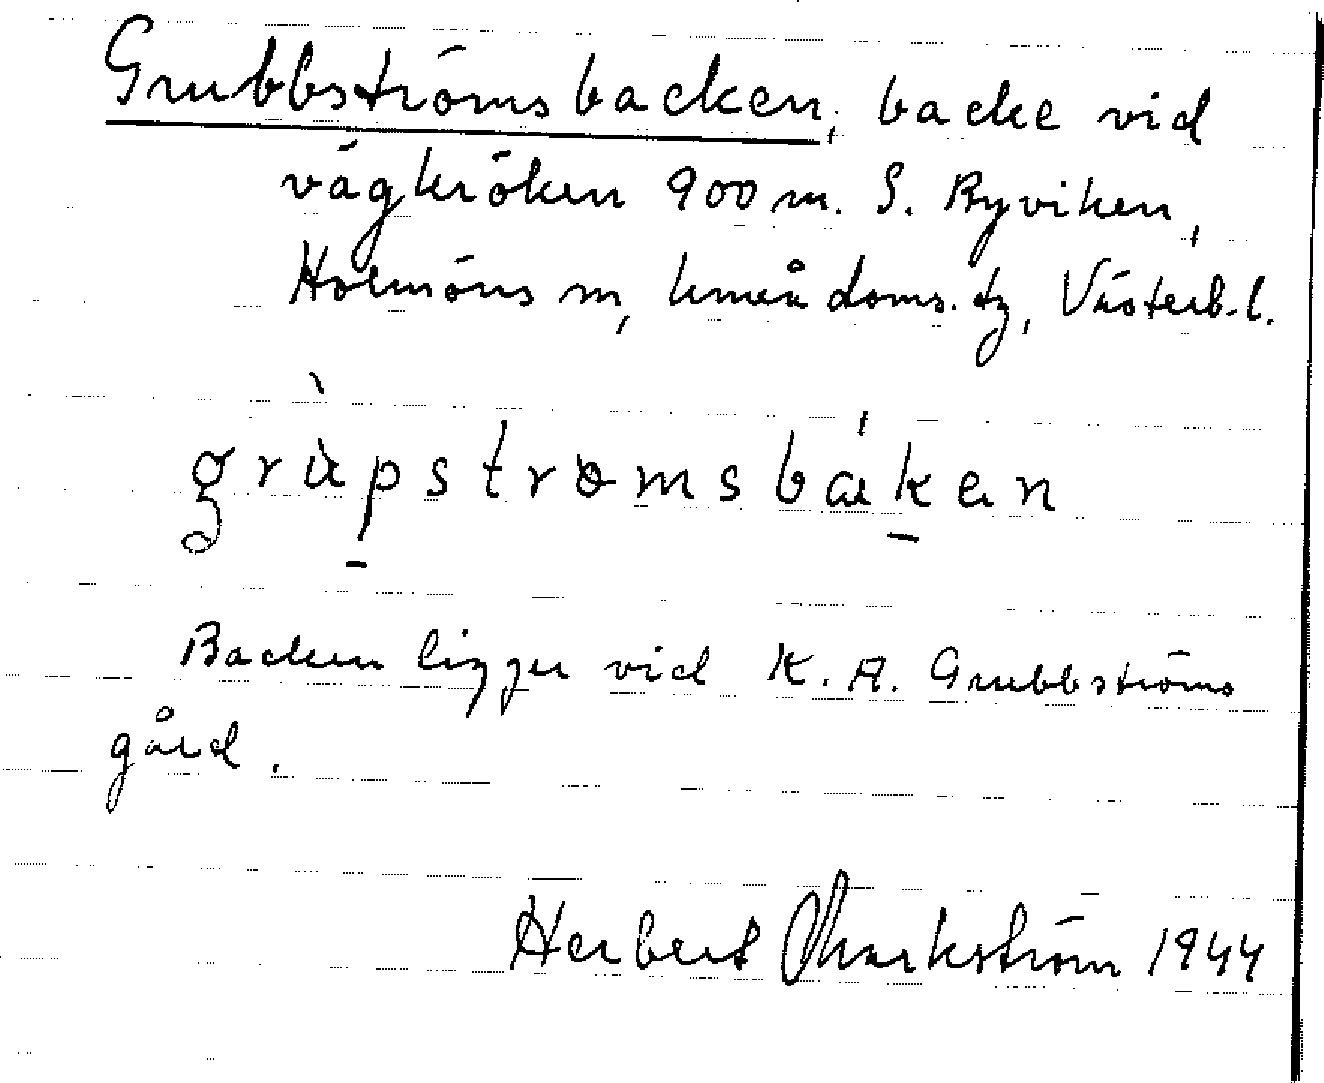 Grubbströmsbacken, backe vid
vägkröken 900 m. S. Byviken,
Holmöns sn, Umeå doms. tg, Västerb. l.
grùpstrømsbákɐn
Backen ligger vid K. A. Grubbströms
gård.
Herbert Markström 1944